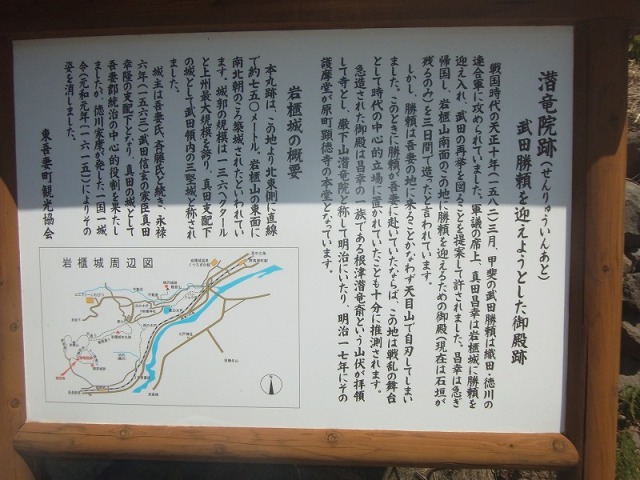 潜竜院跡(せんりゅういんあと)
武田勝頼を迎えようとした御殿跡
戦国時代の天正十年(一五八二)三月、甲斐の武田勝頼は織田・徳川の
連合軍に攻められていました。軍議の席上、真田昌幸は岩櫃城に勝頼を
迎え入れ、武田の再挙を図ることを提案して許されました。昌幸は急ぎ
帰国し、岩櫃山南面のこの地に勝頼を迎えるための御殿(現在は石垣が
残るのみ)を三日間で造ったと言われています。
しかし、勝頼は吾妻の地に来ることかなわず天目山で自刃してしまい
ました。このときに勝頼が吾妻に赴いていたならば、この地は戦乱の舞台
として時代の中心的立場に置かれていたことも十分に推測されます。
急造された御殿は昌幸の一族である根津潜竜斎という山伏が拝領
して寺とし、巌下山潜竜院と称して明治にいたり、明治一七年にその
護摩堂が原町顕徳寺の本堂となっています。
岩櫃城の概要
本丸跡は、この地より北東側に直線
で約七五〇メートル、岩櫃山の東面に
南北朝のころ築城されたといわれてい
ます。城郭の規模は一三六ヘクタール
と上州最大規模を誇り、真田支配下
の城として武田領内の三堅城と称され
ました。
城主は吾妻氏、斉藤氏と続き、永禄
六年(一五六三)武田信玄の家臣真田
幸隆の支配下となり、真田の城として
吾妻郡統治の中心的役割を果たし
ましたが、徳川家康が発した一国一城
令(元和元年(一六一五)によりその
姿を消しました。
東吾妻町観光協会
岩櫃城周辺図